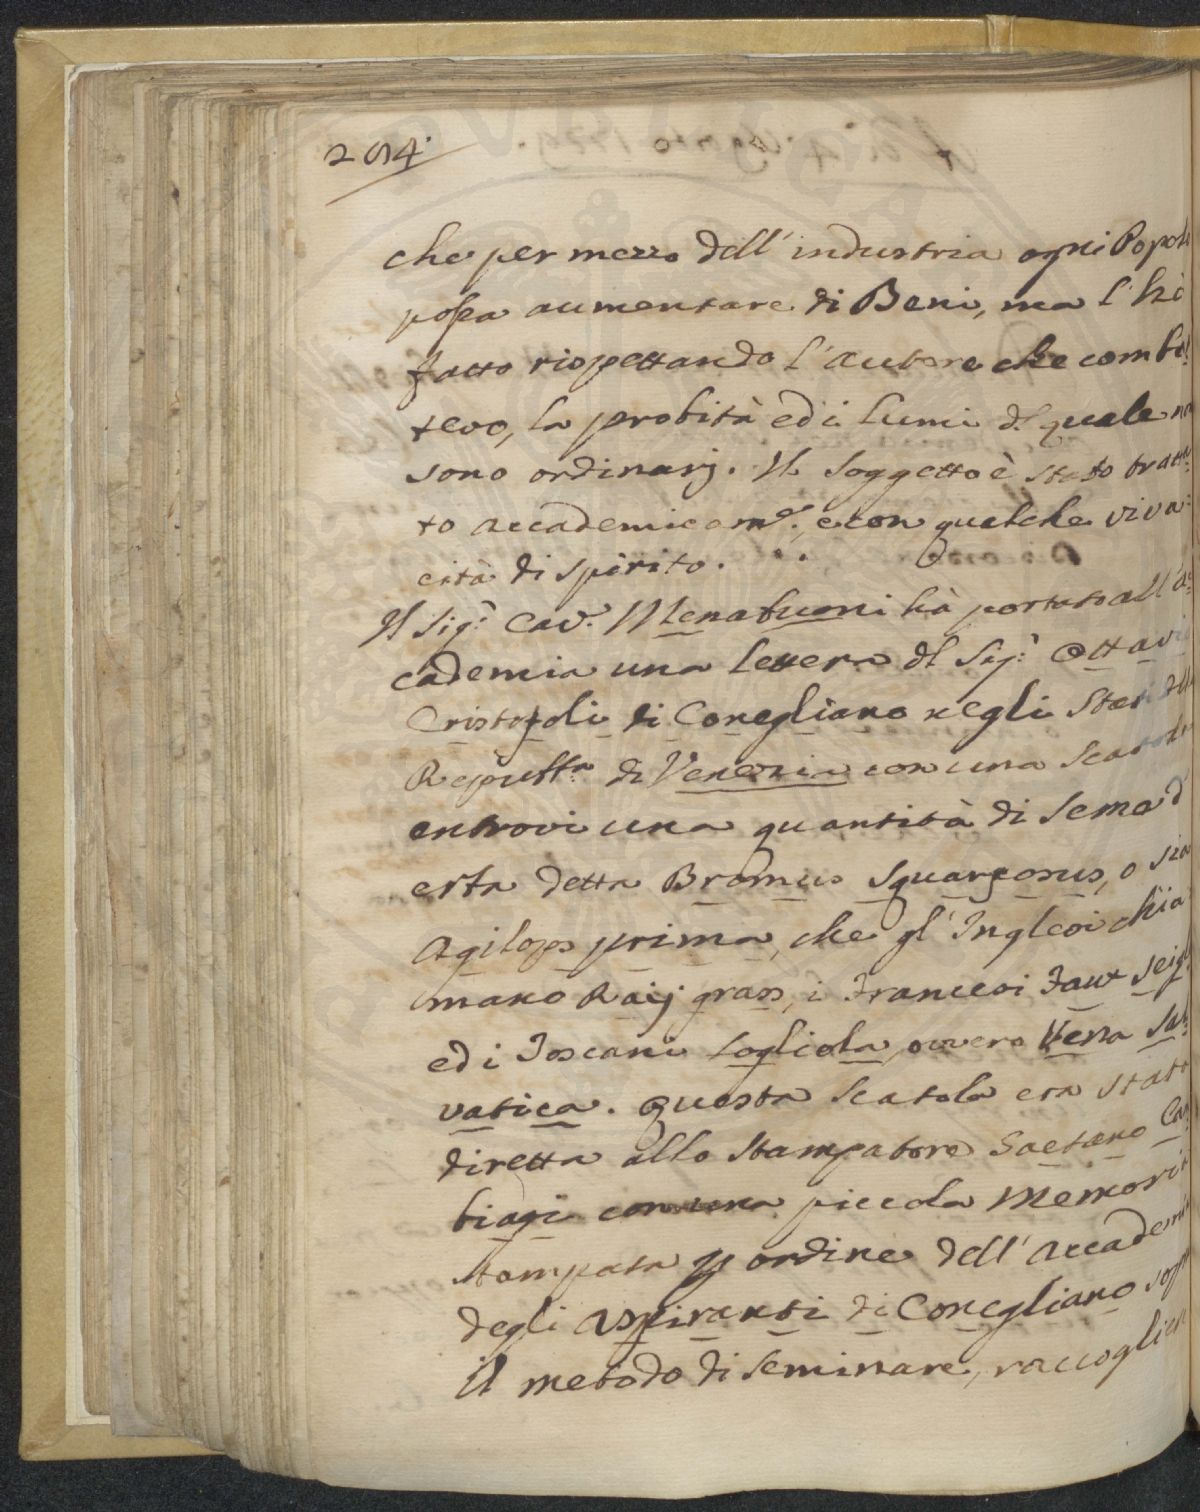 294.
che per mezzo dell'industria ogni Popolo
possa aumentare di Beni, ma l'hò
fatto rispettando l'autore che combat=
tevo, la probità ed i lumi dl quale non
sono ordinarj. Il soggetto è stato tratta=
to accademicam.e, e con qualche viva=
cità di spirito.
Il Sig.r Cav.r Menabuoni hà portato all'A=
cademia una lettera dl Sig.r Ottavio
Cristofoli di Conegliano negli Stati della
Repubb.ca di Venezia con una Scatola
entrovi una quantità di seme d'
erba detta Bromus Squarrosus, o sia
Agilops prima, che gl'Inglesi chia
mano Raij grass, i Francesi Faux Seigl
ed i Toscani Logliola, ovvero Vena Sal=
vatica. Questa scatola era stata
diretta allo Stampatore Gaetano Cam
biagi con una piccola Memoria
stampata p ordine dell'Accademia
degli Aspiranti di Conegliano sopra
il metodo di seminare, raccogliere